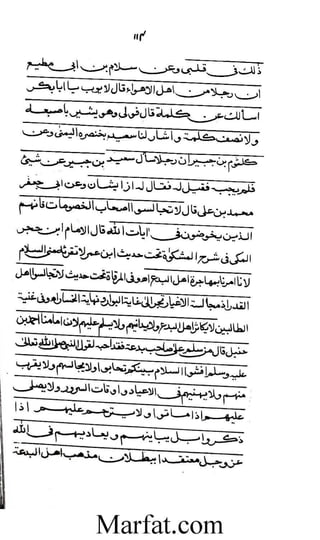 ١١٣
ذلك فى قلبى وعن سلام بن ابى مطيع
ان رجلا من اهل الاهواء قال لايوب يا ابابكر
اسالك عن كلمة قال فولى وهو يشير باصبعه
ولا نصف كلمة و اشار لنا سعيد بخنصره اليمنى وعن
كلثوم بن جبر ان رجلا سال سعيد بن جبير عن شيئ
فلم يجبه فقيل له فقال له ازايشان وعن ابى جعفر
محمد بن على قال لا تجالسوا اصحاب الخصومات فانهم
الذين يخوضون فى ايات الله قال الامام ابن حجر
المكى فى شرح المشكوة تحت حديث ابن عمر لا تقرئه منى السلام
لانا امرنا بمهاجرة اهل البدع اهو فى المرقاة تحت حديث لا تجالسوا اهل
القدر اذ مجالسة الاغيار تجر الى غاية البوار ونهاية الخسار اهو فى غنية
الطالبين لا يكاثر اهل البدع ولا يدانيهم ولا يسلم عليهم لان امامنا احمد بن
حنبل قال من سلم على صاحب بدعة فقد احبه لقول النبى صلى الله تعالى
عليه وسلم افشوا السلام بينكم تحابوا ولا يجالسهم ولا يقرب
منهم ولا يهنيهم فى الاعياد و اوقات السرور ولا يصلى
عليهم اذا ماتوا ولا يترحم عليهم اذا
ذكروا بل يباينهم ويعاديهم فى الله
عز وجل معتقدا ببطلان مذهب اهل البدعة
Marfat.com